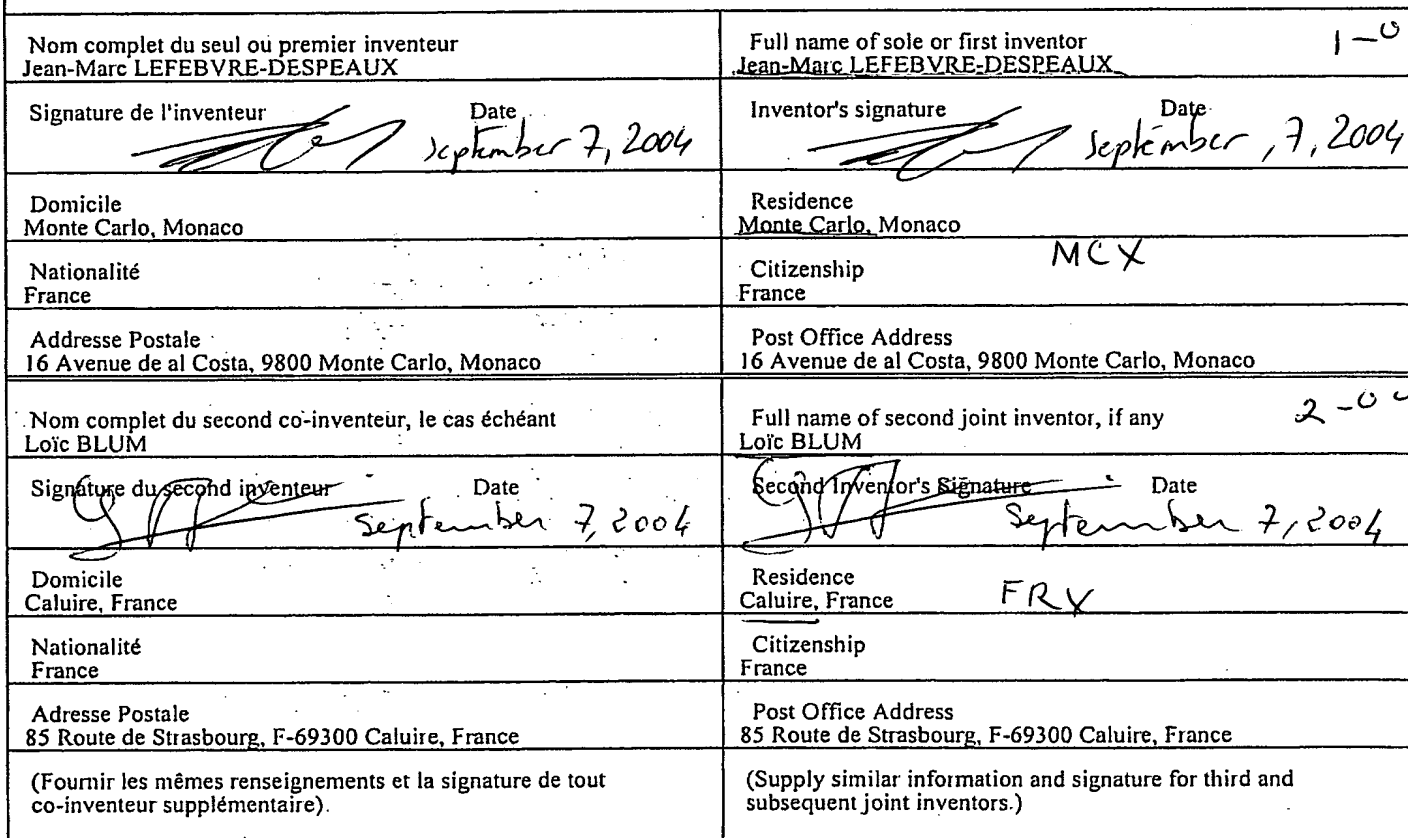 Nom complet du seul ou premier inventeur
Jean-Marc LEFEBVRE-DESPEAUX
Full name of sole or first inventor
Jean-Marc LEFEBVRE-DESPEAUX
Signature de l'inventeur Date
September 7, 2004
Inventor's signature Date
September , 7, 2004
Domicile
Monte Carlo, Monaco
Residence
Monte Carlo, Monaco
MCX
Nationalité
France
Citizenship
France
Addresse Postale
16 Avenue de al Costa, 9800 Monte Carlo, Monaco
Post Office Address
16 Avenue de al Costa, 9800 Monte Carlo, Monaco
Nom complet du second co-inventeur, le cas échéant
Loïc BLUM
Full name of second joint inventor, if any
Loïc BLUM
Signature du second inventeur Date
September 7, 2004
Second Inventor's Signature Date
September 7, 2004
Domicile
Caluire, France
Residence
Caluire, France FRX
Nationalité
France
Citizenship
France
Adresse Postale
85 Route de Strasbourg, F-69300 Caluire, France
Post Office Address
85 Route de Strasbourg, F-69300 Caluire, France
(Fournir les mêmes renseignements et la signature de tout
co-inventeur supplémentaire).
(Supply similar information and signature for third and
subsequent joint inventors.)